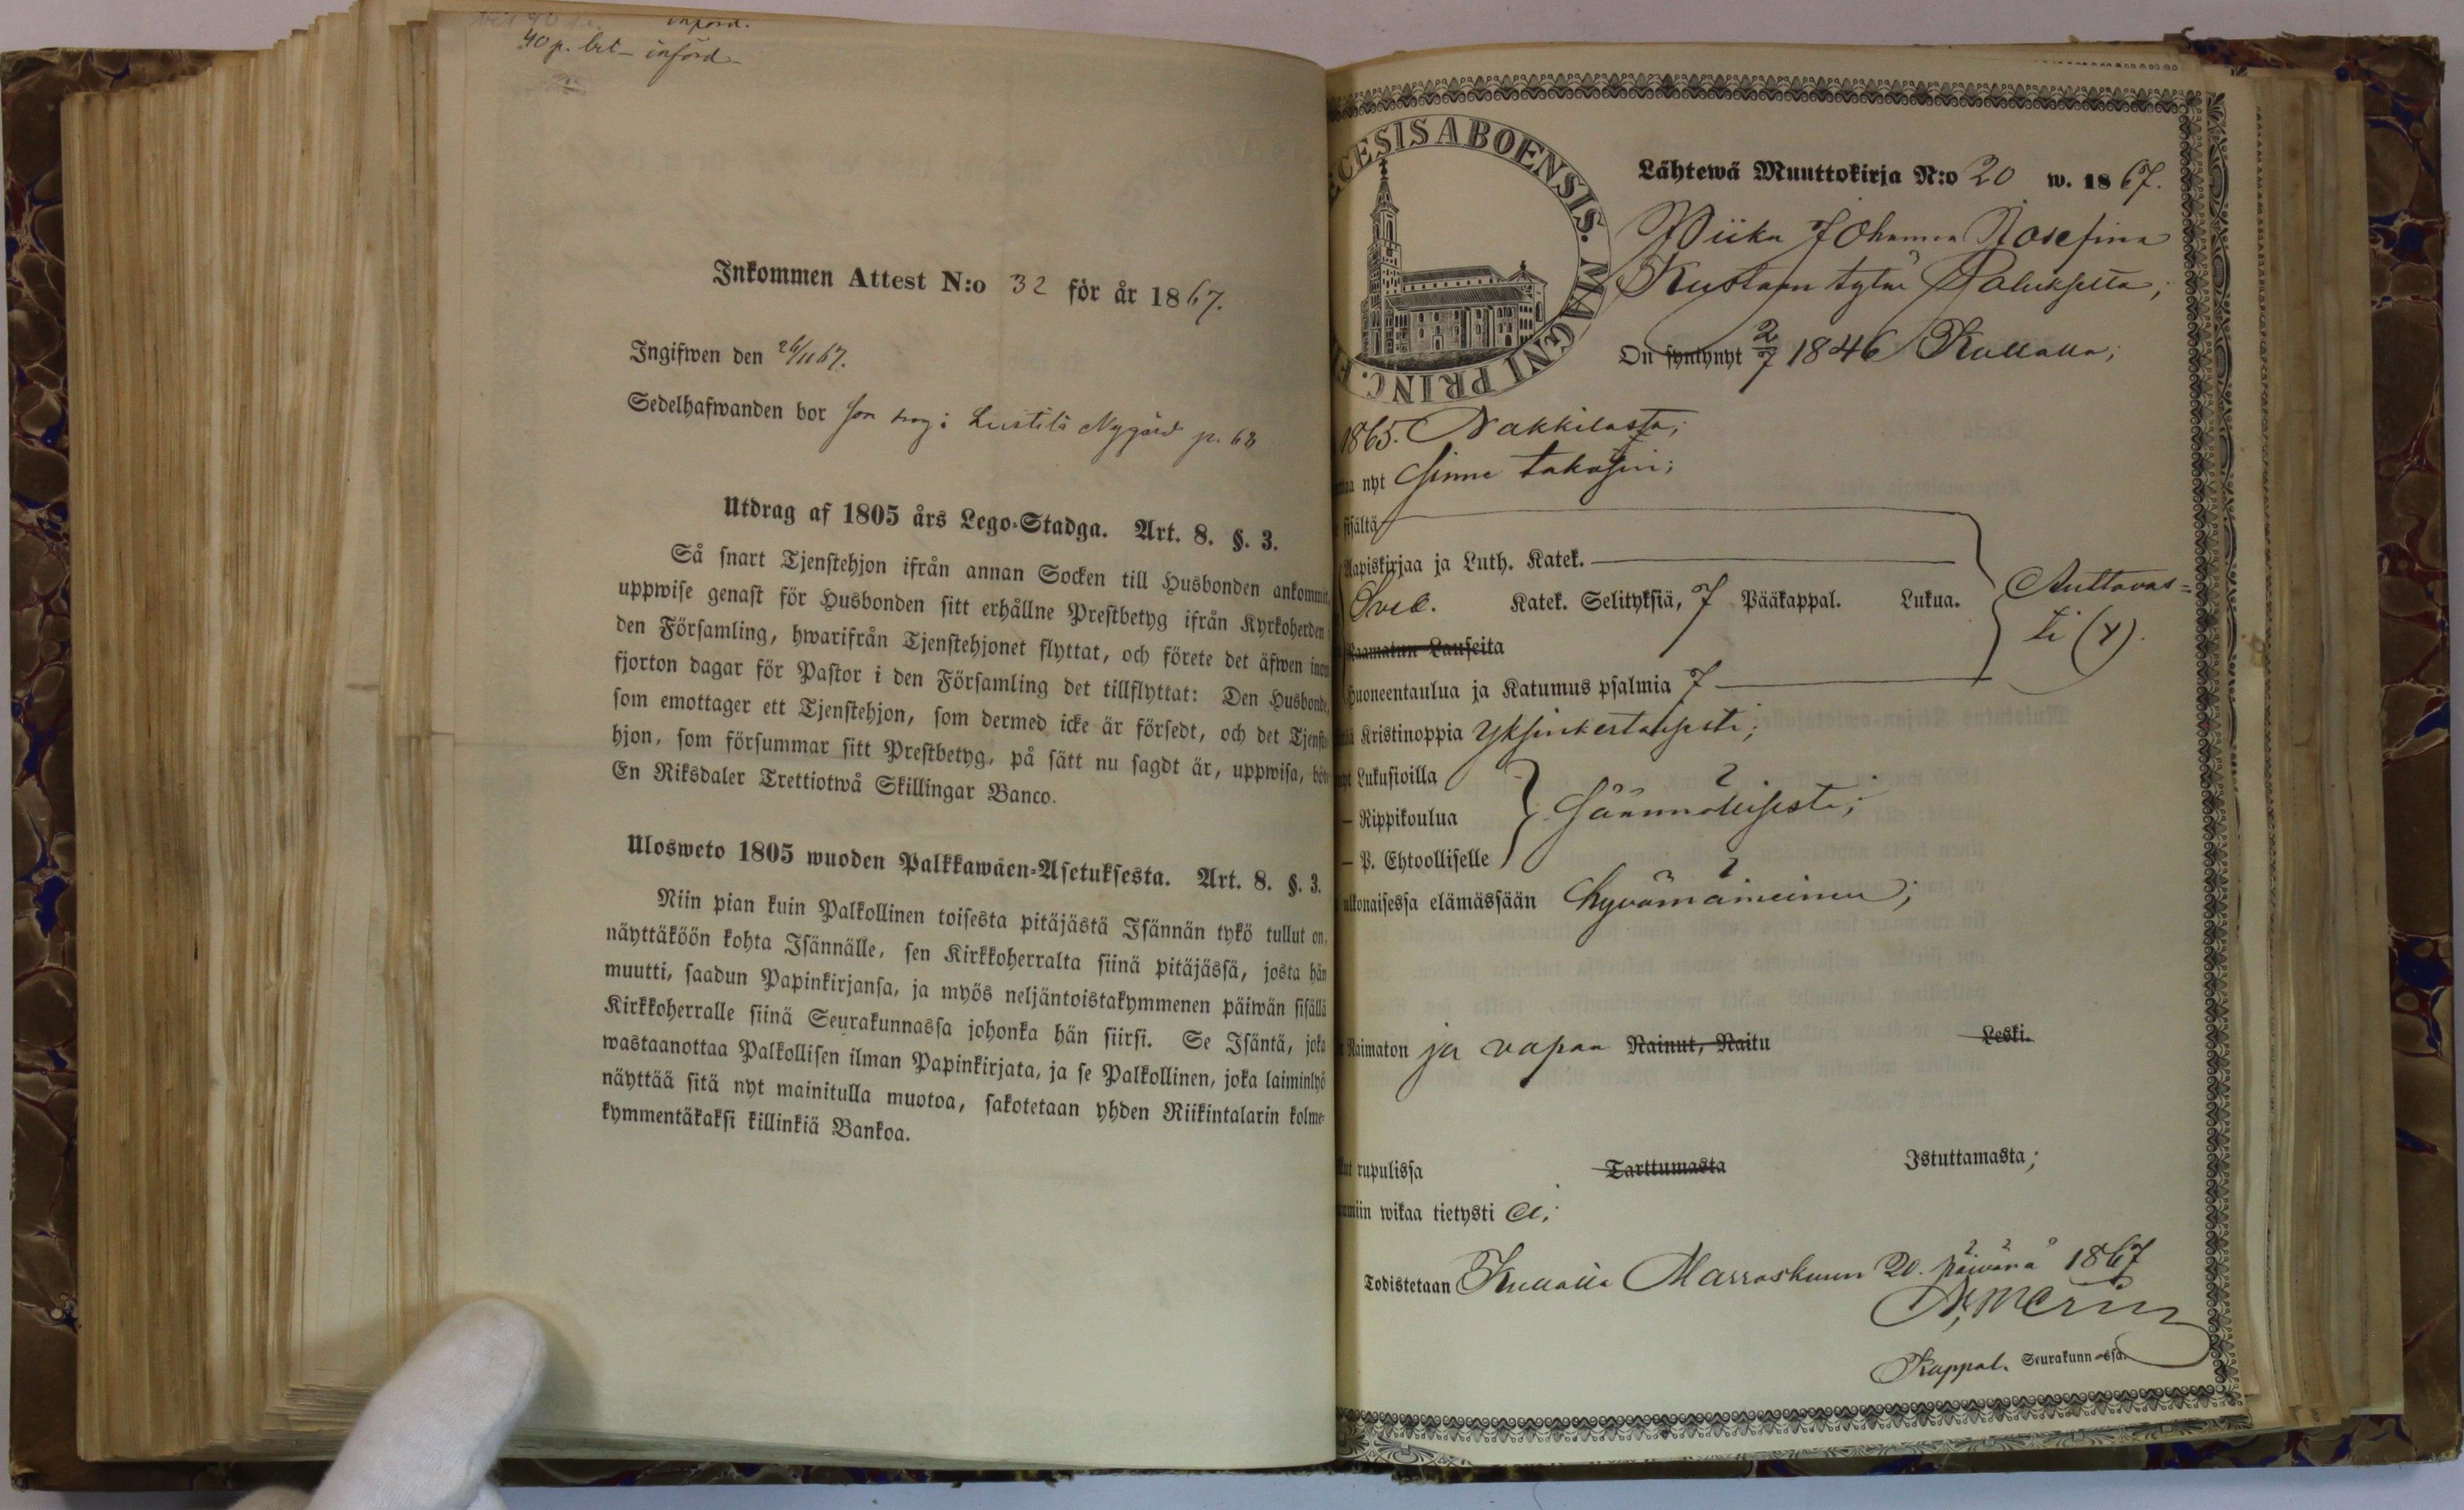 införd.
40 p. bet - införd
Inkommen Attest N:o 32 för år 1867.
Ingifwen den 26/11 67.
Sedelhafwanden bor som trog: Leistilä Nygård p. 68
Utdrag af 1805 års Lego-Stadga. Art. 8. §. 3.
Så snart Tjenstehjon ifrån annan Socken till Husbonden ankommit,
uppwise genast för Husbonden sitt erhållne Prestbetyg ifrån Kyrkoherden i
den Församling, hwarifrån Tjenstehjonet flyttat, och förete det äfwen inom
fjorton dagar för Pastor i den Församling det tillflyttat: Den Husbonde,
som emottager ett Tjenstehjon, som dermed icke är försedt, och det Tjenste-
hjon, som försummar sitt Prestbetyg, på sätt nu sagdt är, uppwisa, böte
En Riksdaler Trettiotwå Skillingar Banco.
Ulosweto 1805 wuoden Palkkawäen-Asetuksesta. Art. 8. §. 3.
Niin pian kuin Palkollinen toisesta pitäjästä Isännän tykö tullut on,
näyttäköön kohta Isännälle, sen Kirkkoherralta siinä pitäjässä, josta hän
muutti, saadun Papinkirjansa, ja myös neljäntoistakymmenen päiwän sisällä
Kirkkoherralle siinä Seurakunnassa johonka hän siirsi. Se Isäntä, joka
wastaanottaa Palkollisen ilman Papinkirjata, ja se Palkollinen, joka laiminlyö
näyttää sitä nyt mainitulla muotoa, sakotetaan yhden Riikintalarin kolme-
kymmentäkaksi killinkiä Bankoa.
ECESIS ABOENSIS. MAGNI PRINC. F
Lähtewä Muuttokirja N:o 20 w. 1867.
Piika Johanna Josefina
Kustaan tytär Paluksella;
On syntynyt 2/7 1846 Kullalla;
1865. Nakkilasta;
nyt sinne takasin;
sisältä
Aapiskirjaa ja Luth. Katek.
Sveb. Katek. Selityksiä, 7 Pääkappal. Lukua.
Auttavas=
ti (y).
Raamatun Lauseita
Huoneentaulua ja Katumus psalmia 7
Kristinoppia yksinkertaisesti;
Lukusioilla
– Rippikoulua
säännöllisesti;
– P. Ehtoolliselle
ulkonaisessa elämässään hyvämaineinen;
Naimaton ja vapaa Nainut, Naitu Leski.
rupulissa Tarttumasta Istuttamasta;
wikaa tietysti ei;
Todistetaan Kullalla Marraskuun 20. päivänä 1867
Kappal. Seurakunnassa.